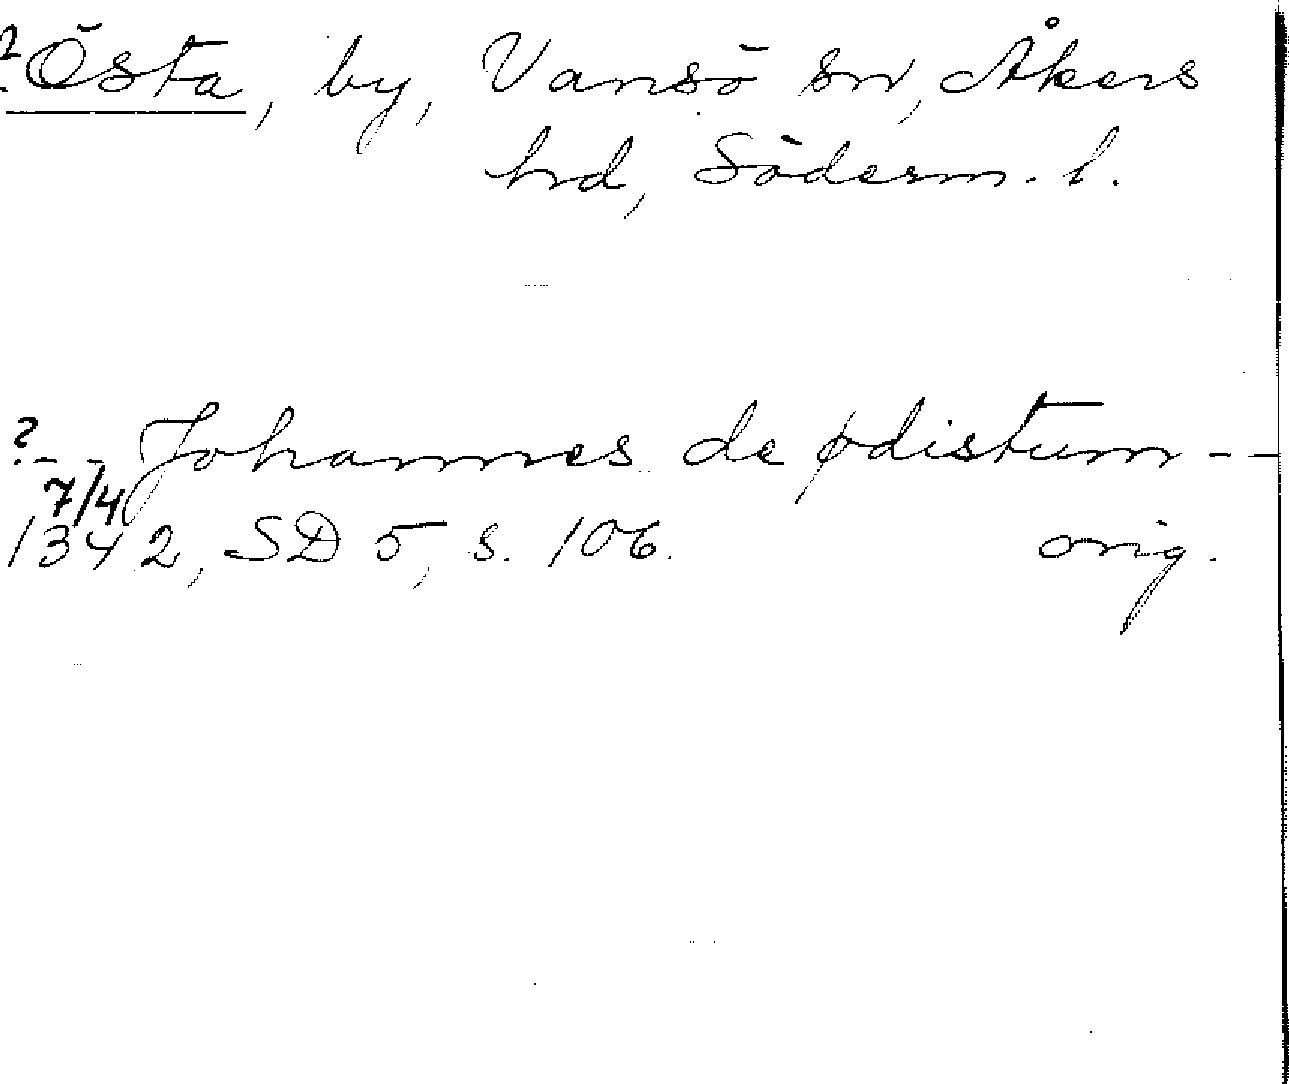 ? Östa, by, Vansö sn, Åkers
hrd, Söderm. l.
? - - Johannes de ødistum - -
7/4
1342, SD 5, s. 106. orig.